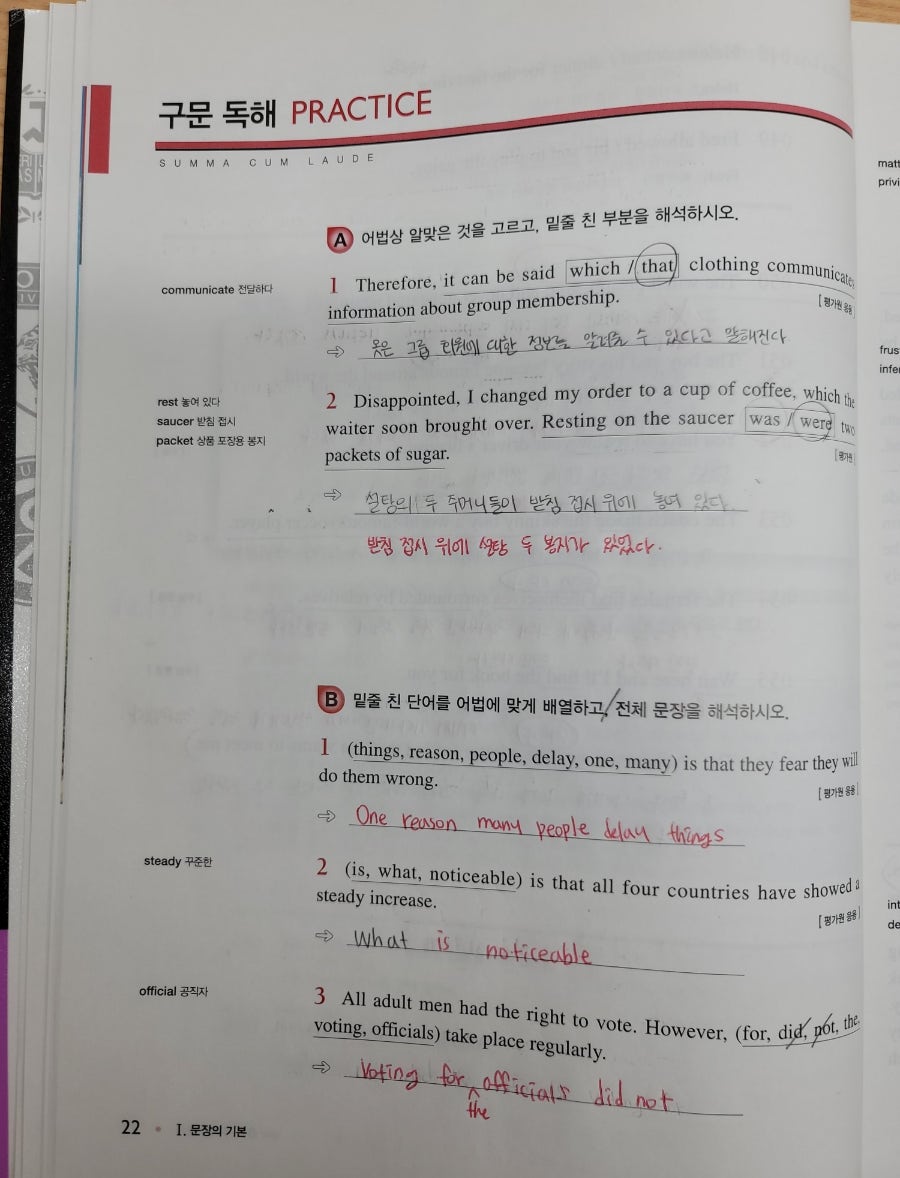 구문 독해 PRACTICE
SUMMA CUM LAUDE
A 어법상 알맞은 것을 고르고, 밑줄 친 부분을 해석하시오.
communicate 전달하다
1 Therefore, it can be said which / that clothing communicates
information about group membership. [평가원 응용]
⇨ 옷은 그룹 회원에 대한 정보를 알려줄 수 있다고 말해진다
rest 놓여 있다
saucer 받침 접시
packet 상품 포장용 봉지
2 Disappointed, I changed my order to a cup of coffee, which the
waiter soon brought over. Resting on the saucer was / were two
packets of sugar. [평가원]
⇨ 설탕의 두 주머니들이 받침 접시 위에 놓여 있다
받침 접시 위에 설탕 두 봉지가 있었다.
B 밑줄 친 단어를 어법에 맞게 배열하고, 전체 문장을 해석하시오.
1 (things, reason, people, delay, one, many) is that they fear they will
do them wrong. [평가원 응용]
⇨ One reason many people delay things
steady 꾸준한
2 (is, what, noticeable) is that all four countries have showed a
steady increase. [평가원 응용]
⇨ What is noticeable
official 공직자
3 All adult men had the right to vote. However, (for, did, not, the,
voting, officials) take place regularly.
⇨ voting for officials did not
the
22 • I. 문장의 기본
matt
privi
frus
infe
int
de